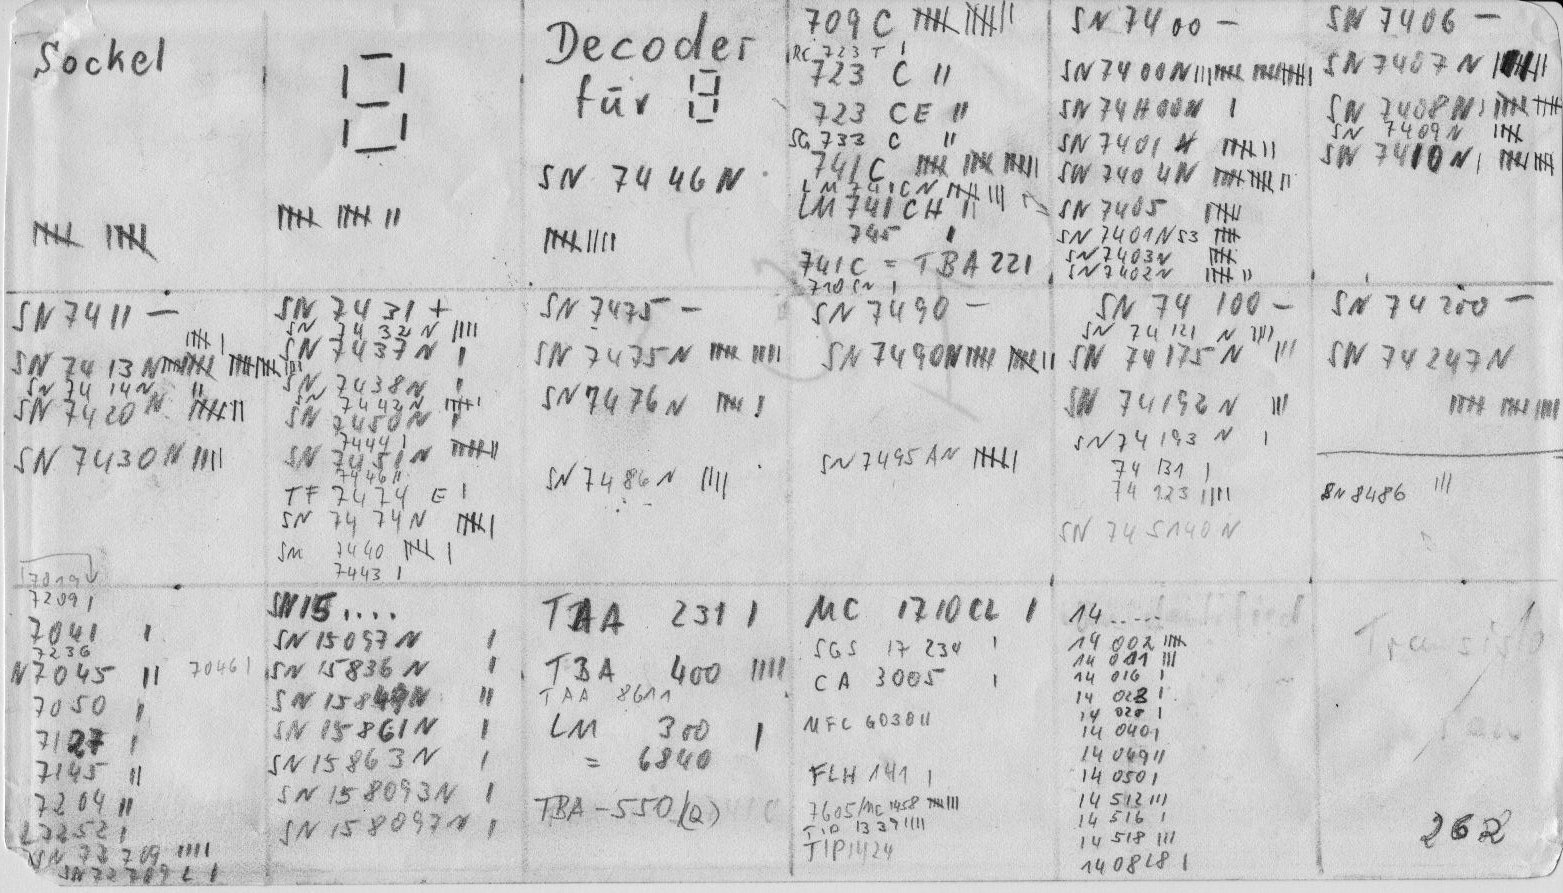 Sockel
Decoder
für 8
SN 7446N
709 C
RC 723 T I
723 C II
723 CE II
SG 733 C II
741C
LM 741CN
LM 741 CH II
745 I
741C = TBA 221
710 SN I
SN 7400 –
SN 7400N
SN 74H00N I
SN 7401 N
SN 7404N
SN 7405
SN 7401N S3
SN 7403N
SN 7402N
SN 7406 –
SN 7407 N
SN 7408N
SN 7409N
SN 7410N
SN 7411 –
SN 7413N
SN 7414N II
SN 7420N
SN 7430N IIII
SN 7431 +
SN 7432N IIII
SN 7437N I
SN 7438N I
SN 7442N
SN 7450N I
7444 I
SN 7451N
7446 II
TF 7474 E I
SN 7474N
SN 7440
7443 I
SN 7475 –
SN 7475N
SN 7476N
SN 7486N IIII
SN 7490 –
SN 7490N
SN 7495AN
SN 74 100 –
SN 74 121 N IIII
SN 74175N III
SN 74192N III
SN 74193 N I
74 131 I
74 123 IIII
SN 74S140N
SN 74200 –
SN 74247N
SN8486 III
7019
7209 I
7041 I
7236
N7045 II 7046 I
7050 I
7127 I
7145 II
7204 II
L7252 I
SN 72 709 IIII
SN72709 L I
SN15....
SN 15097N I
SN 15836N I
SN 15849N II
SN 15861N I
SN 15863N I
SN 158093N I
SN 158097N I
TAA 231 I
TBA 400 IIII
TAA 8611
LM 300 I
= 6840
TBA-550 (Q)
MC 1710CL I
SGS 17 230 I
CA 3005 I
MFC 6030 II
FLH 141 I
7605/MC1458
TIP1424
14.....
14 002
14 011 III
14 016 I
14 023 I
14 028 I
14 040 I
14 049 II
14 050 I
14 512 III
14 516 I
14 518 III
14 0818 I
262